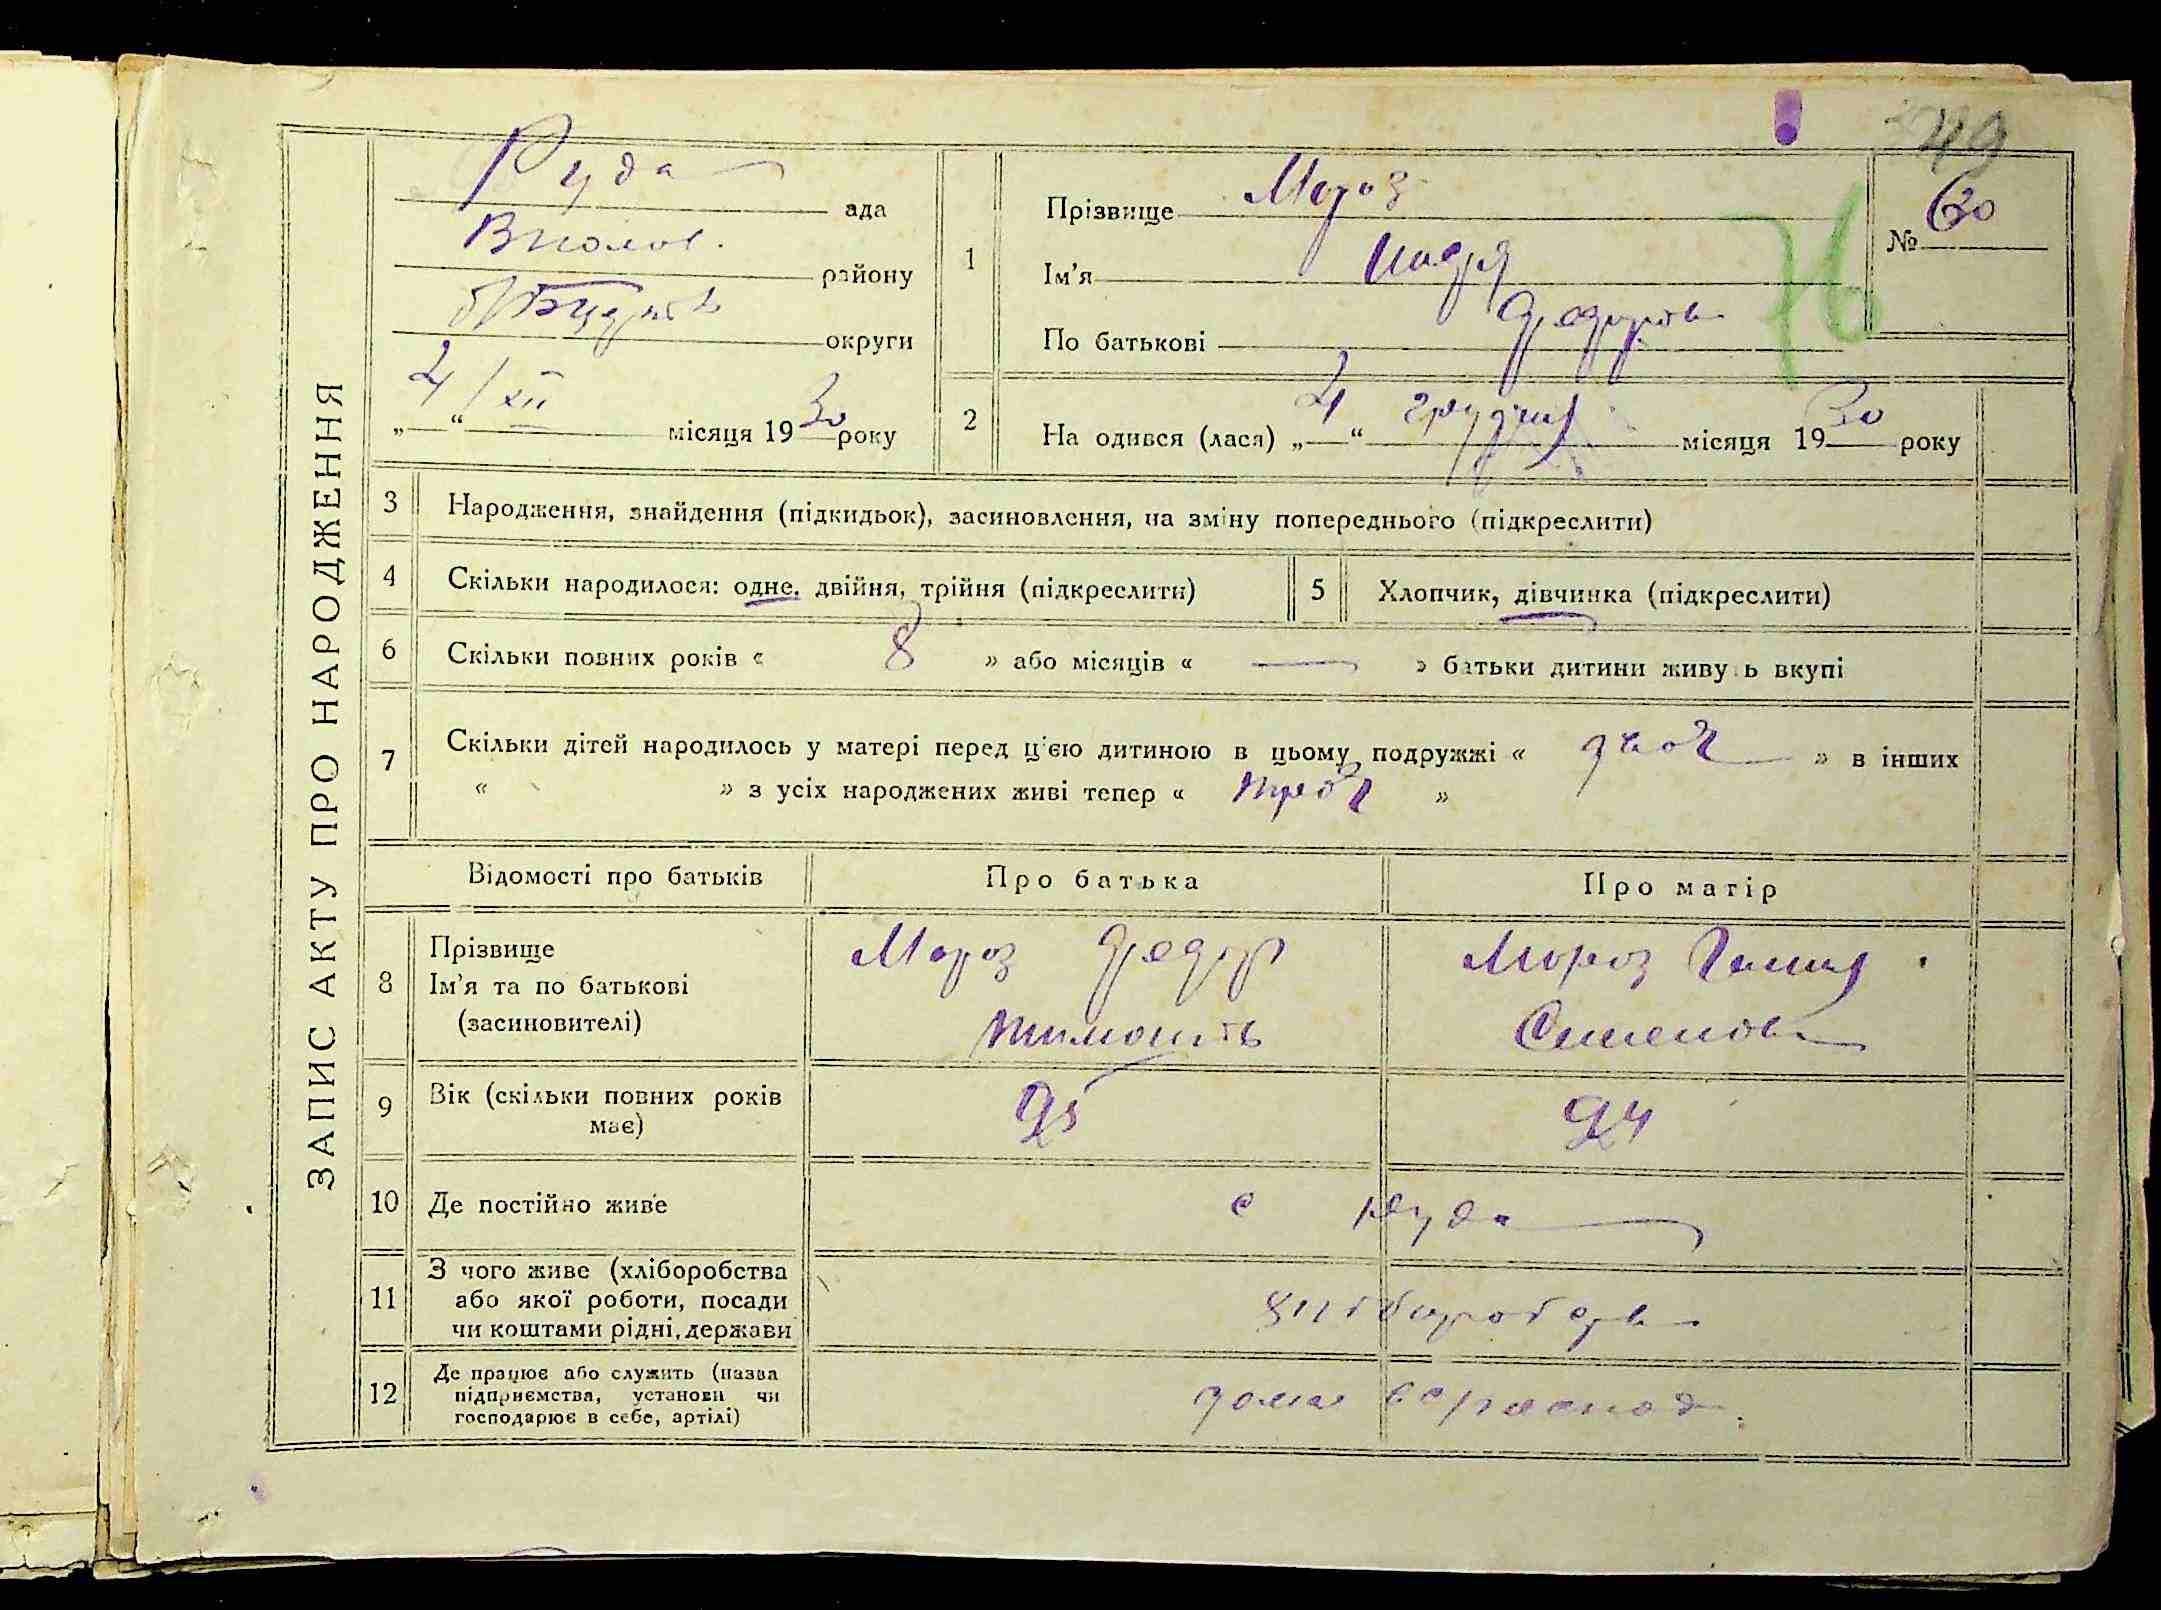 49
ЗАПИС АКТУ ПРО НАРОДЖЕННЯ
Руда ада
району
округи
„4“ XII місяця 1930 року
1
Прізвище Мороз
Ім'я
По батькові
№ 60
76
2
На одився (лася) „4“ грудня місяця 1930 року
3 Народження, знайдення (підкидьок), засиновлення, на зміну попереднього (підкреслити)
4 Скільки народилося: одне, двійня, трійня (підкреслити)
5 Хлопчик, дівчинка (підкреслити)
6 Скільки повних років « 8 » або місяців « — » батьки дитини живу ь вкупі
7 Скільки дітей народилось у матері перед ц'єю дитиною в цьому подружжі « двоє » в інших
« » з усіх народжених живі тепер « »
Відомості про батьків Про батька Про матір
8 Прізвище
Ім'я та по батькові
(засиновителі)
Мороз Федор
Мороз
Семенов
9 Вік (скільки повних років
має)
25
24
10 Де постійно живе
с Руда
11 З чого живе (хліборобства
або якої роботи, посади
чи коштами рідні, держави
12 Де працює або служить (назва
підприємства, установи чи
господарює в себе, артілі)